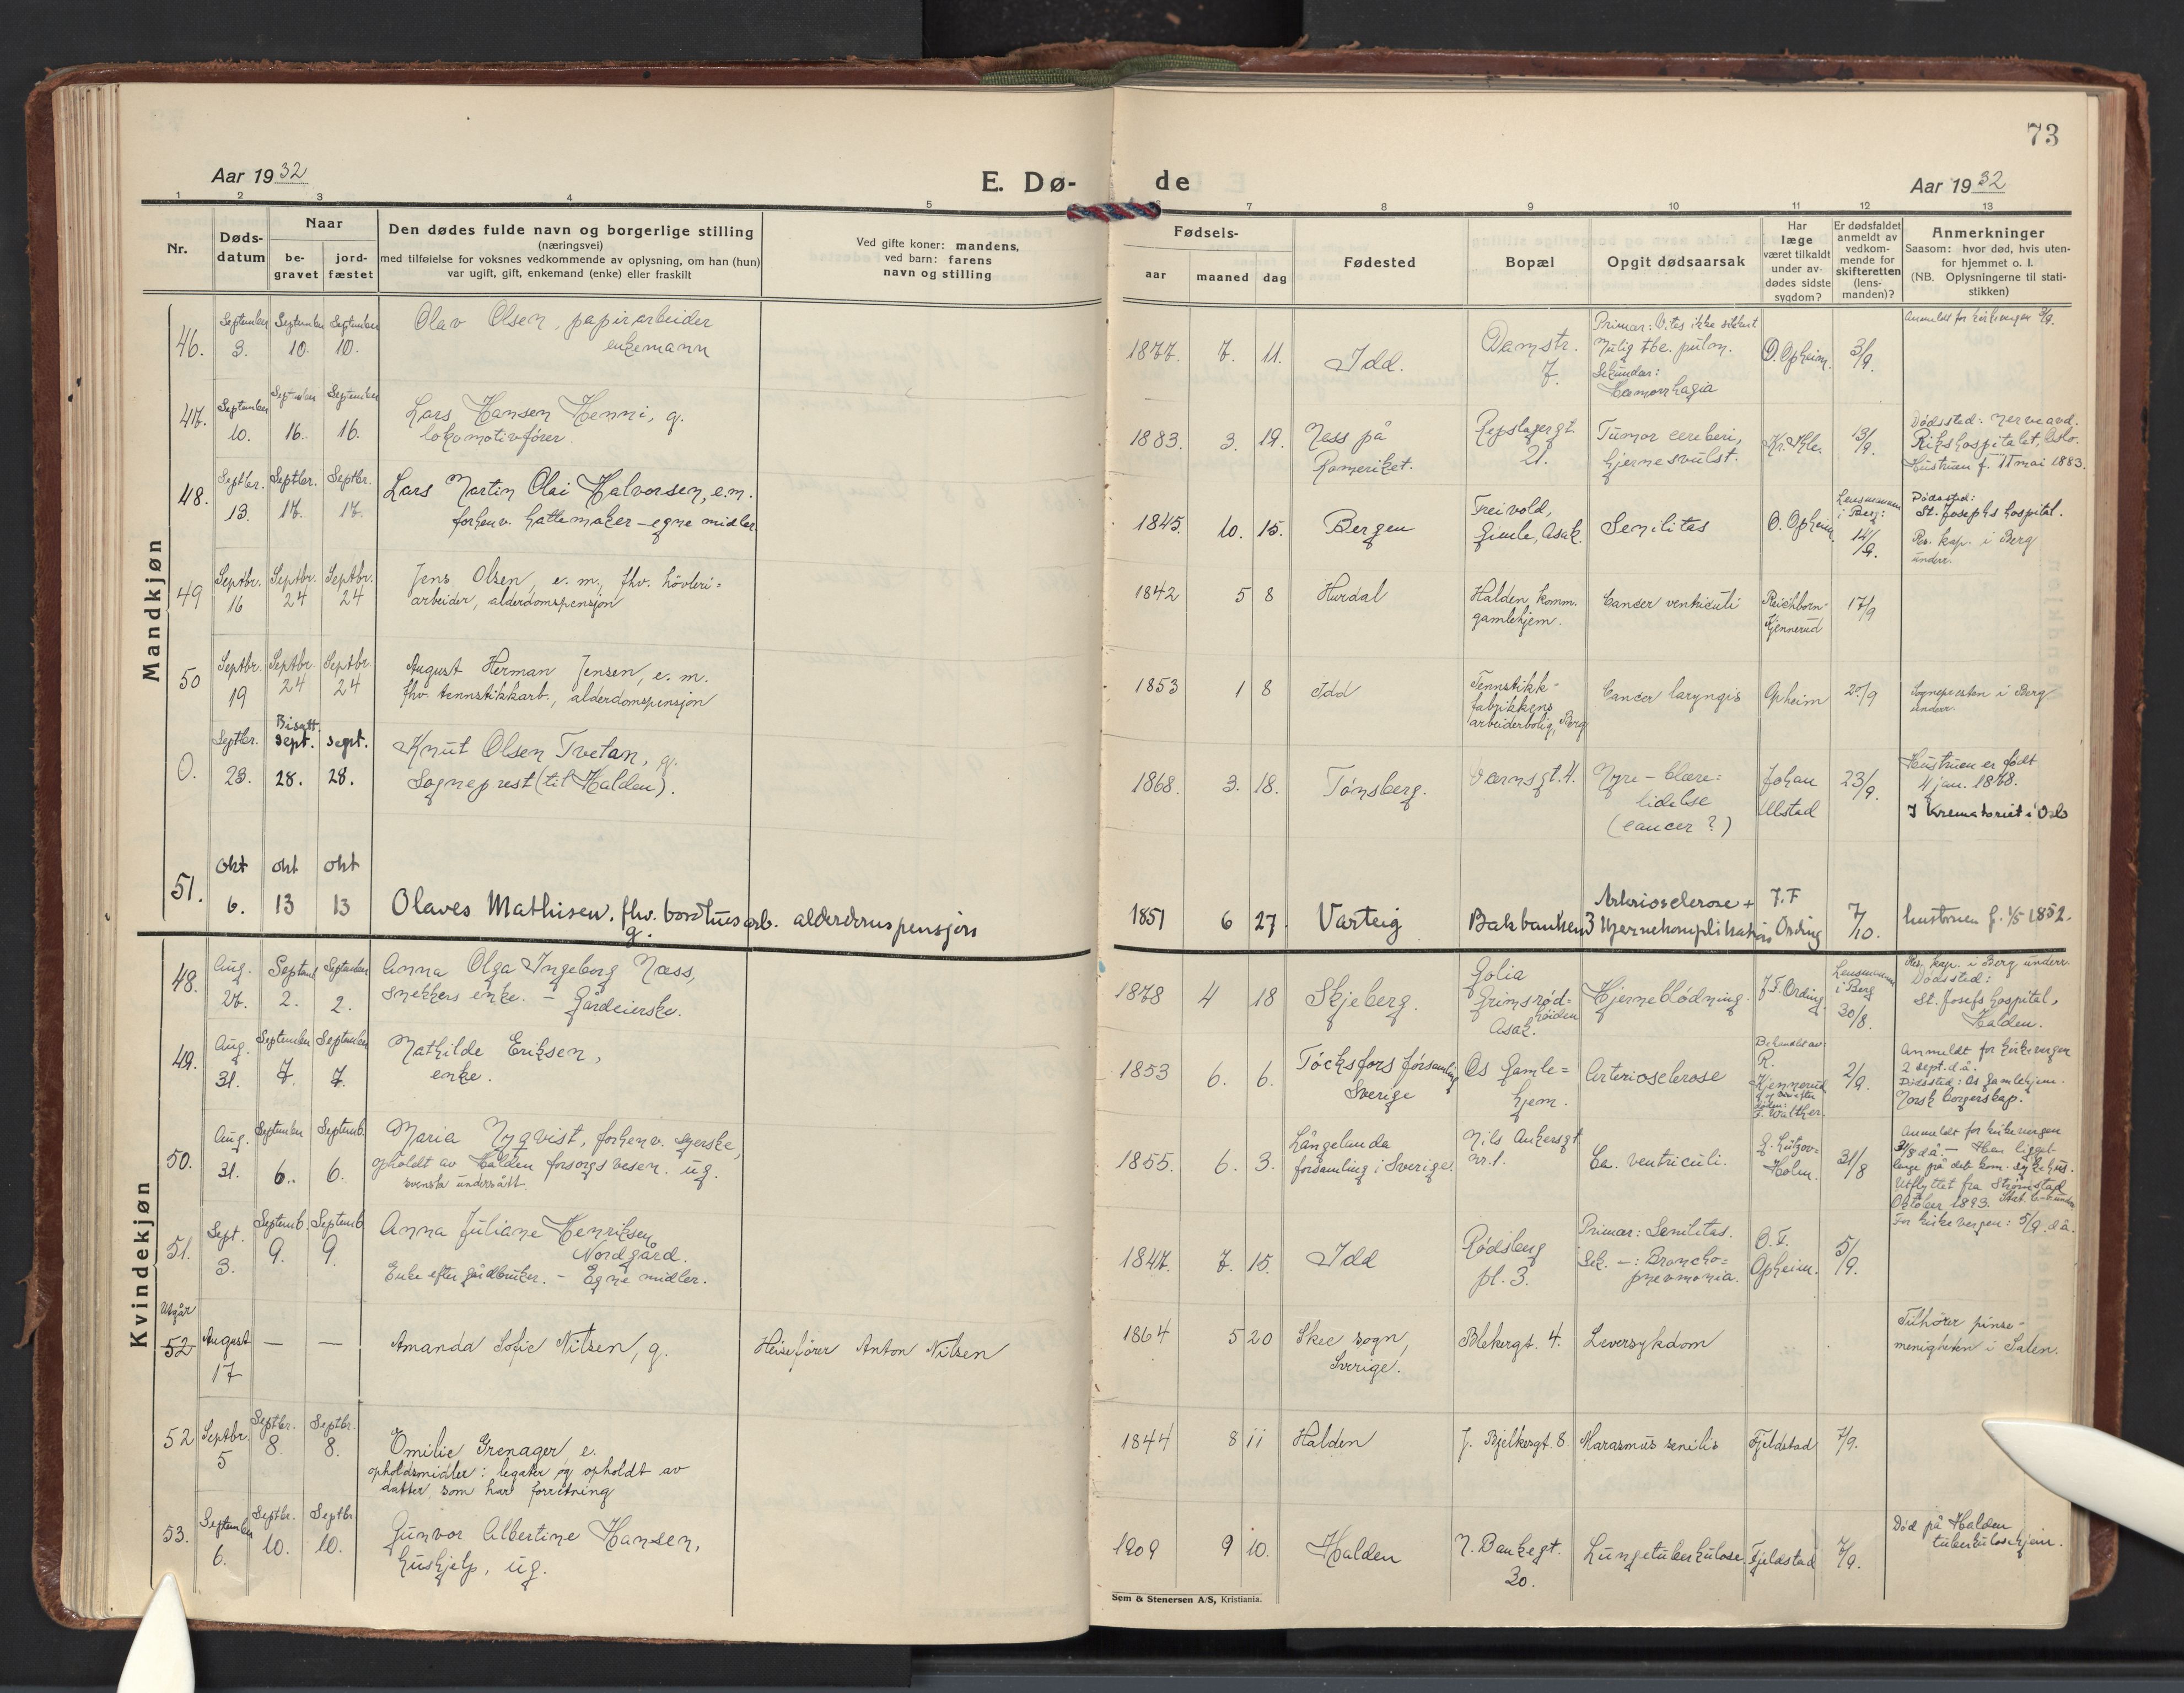 73
Aar 1932
E. Dø-
de
Aar 1932
1 2 3 4 5
7 8 9 10 11 12 13
Nr.
Døds-
datum
Naar
be-
gravet
jord-
fæstet
Den dødes fulde navn og borgerlige stilling
(næringsvei)
med tilføielse for voksnes vedkommende av oplysning, om han (hun)
var ugift, gift, enkemand (enke) eller fraskilt
Ved gifte koner: mandens,
ved barn: farens
navn og stilling
Fødsels-
aar
maaned
dag
Fødested
Bopæl
Opgit dødsaarsak
Har
læge
været tilkaldt
under av-
dødes sidste
sygdom?
Er dødsfaldet
anmeldt av
vedkom-
mende for
skifteretten
(lens-
manden)?
Anmerkninger
Saasom: hvor død, hvis uten-
for hjemmet o. l.
(NB. Oplysningerne til stati-
stikken)
Mandkjøn
46.
September
3.
September
10.
September
10.
Olav Olsen, papirarbeider
enkemann
1877.
7.
11.
Idd.
Damstr.
7.
Primær: Vites ikke sikkert
Mulig tbc. pulm.
Sekundær:
Hæmorrhagia
O. Opheim.
3/9.
Anmeldt for kirkevergen
47.
September
10.
September
16.
September
16.
Lars Hansen Henni, g.
lokomotivfører.
1883.
3.
19.
Ness på
Romeriket.
Repslagergt.
21.
Tumor cereberi,
hjernesvulst.
13/9.
Dødssted: Nerveavd.
Rikshospitalet, Oslo.
Hustruen f. 11 mai 1883.
48.
Septbr.
13.
Septbr.
17.
Septbr.
17.
Lars Martin Olai Halvorsen, e.m.
forhenv. hattemaker - egne midler.
1845.
10.
15.
Bergen
Freivold,
Gimle, Asak.
Senilitas
O. Opheim.
Lensmannen
i Berg:
14/9.
Dødssted:
St. Josephs hospital.
Res. kap. i Berg
underr.
49
Septbr.
16
Septbr.
24
Septbr.
24
Jens Olsen, e. m., fhv. høvleri=
arbeider, alderdomspensjon
1842
5
8
Hurdal
Halden komm.
gamlehjem.
Cancer ventriculi
Reichborn-
Kjennerud
17/9
50
Septbr.
19
Septbr.
24
Septbr.
24
August Herman Jensen, e. m.
fhv. tennstikkarb., alderdomspensjon
1853
1
8
Idd
Tennstikk-
fabrikkens
arbeiderbolig, Berg
Cancer laryngis
Opheim
20/9
Sognepresten i Berg
underr.
0.
Septbr.
23.
Bisatt
sept.
28.
sept.
28.
Knut Olsen Tvetan, g.
Sogneprest (til Halden).
1868.
3.
18.
Tønsberg.
Værnsgt. 4.
Nyre - blære=
lidelse
(cancer ?)
Johan
Ulstad
23/9.
Hustruen er født
4 jan. 1868.
I Krematoriet i Oslo
51.
okt
6.
okt
13
okt
13
Olaves Mathisen, fhv. bordtusarb. alderdomspensjon
g.
1851
6
27.
Varteig
Bakbanken 3
Arteriosclerose +
Hjernekomplikasjon
F. F
Ording
7/10.
hustruen f. 1/5 1852.
Kvindekjøn
48.
Aug.
27.
Septemb
2.
September
2.
Anna Olga Ingeborg Næss,
snekkers enke. - Gårdeierske.
1878
4
18
Skjeberg.
Golia
Grimsrød=
høiden
Asak.
Hjerneblødning.
F. F. Ording.
Lensmannen
i Berg
30/8.
Res. kap. i Berg underr.
Dødssted:
St. Josefs hospital,
Halden.
49.
Aug.
31.
September
7.
September
7.
Mathilde Eriksen,
enke.
1853
6.
6.
Töcksfors församling
Sverige
Os Gamle=
hjem.
Arteriosclerose
Behandlet av:
R.
Kjennerud
F. Walther
2/9.
Anmeldt for kirkevergen
2 sept. d.å.
Dødssted: Os gamlehjem.
Norsk borgerskap.
50.
Aug.
31.
September
6.
Septemb.
6.
Maria Nyqvist, forhenv. syerske,
opholdt av Halden forsorgsvesen. ug.
svensk undersått.
1855.
6.
3.
Långelanda
församling i Sverige.
Nils Ankersgt.
nr. 1.
Ca. ventriculi.
Lützow=
Holm.
31/8
Anmeldt for kirkevergen
31/8 d.å. - Har ligget
lenge på det kom. sykehus.
Utflyttet fra Strømstad
Oktober 1893.
51.
Sept.
3.
Septemb.
9.
Septemb
9.
Anna Juliane Henriksen
Nordgård.
Enke efter gårdbruker. - Egne midler.
1847.
7.
15.
Idd
Rødsberg
pl. 3.
Primær: Senilitas.
Sek. -: Broncho=
pneumonia.
O. F.
Opheim.
5/9.
For kirkevergen: 5/9. d.å.
Utgår
52
August
17
—
—
Amanda Sofie Nilsen, g.
Heisefører Anton Nilsen
1864
5
20
Skee sogn,
Sverige.
Blekergt. 4.
Leversykdom
Tilhører pinse-
menigheten i Salen.
52
Septbr.
5
Septbr.
8.
Septbr.
8.
Emilie Grenager, e.
opholdsmidler: legater og opholdt av
datter som har forretning
1844
8
11
Halden
J. Bjelkesgt. 8.
Marasmus senilis
Fjeldstad
7/9.
53.
September
6.
Septbr.
10.
Septbr
10.
Gunvor Albertine Hansen,
hushjelp, ug.
1909
9
10.
Halden
N. Bankegt.
30.
Lungetuberkulose.
Fjeldstad
7/9.
Død på Halden
tuberkulosehjem.
Sem & Stenersen A/S, Kristiania.